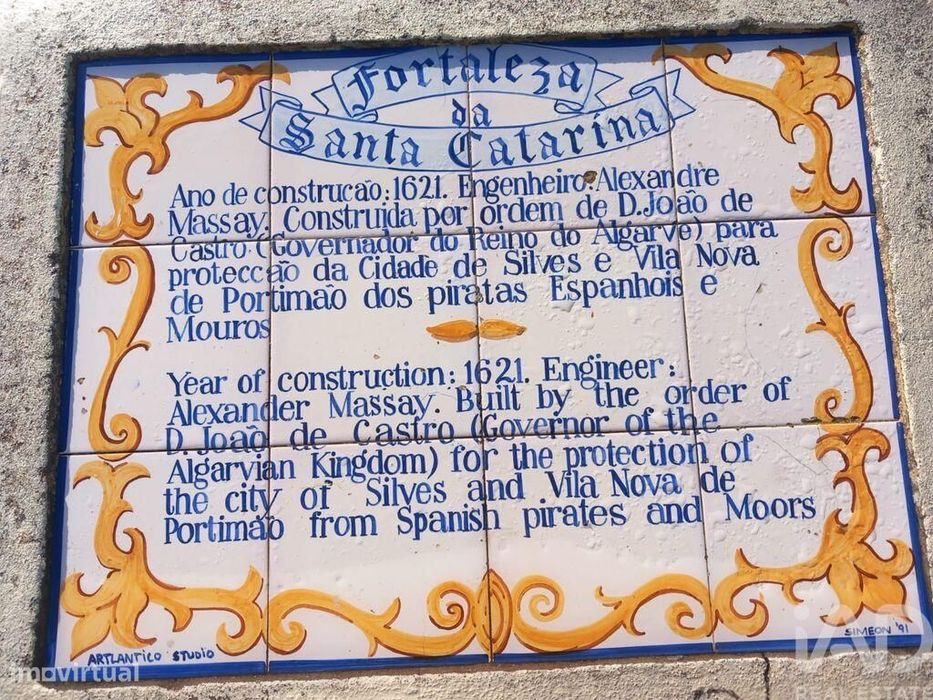 Fortaleza
da
Santa Catarina
Ano de construcão: 1621. Engenheiro: Alexandre
Massay. Construida por ordem de D. João de
Castro (Governador do Reino do Algarve) para
proteccão da Cidade de Silves e Vila Nova
de Portimão dos piratas Espanhois e
Mouros
Year of construction: 1621. Engineer:
Alexander Massay. Built by the order of
D. João de Castro (Governor of the
Algarvian Kingdom) for the protection of
the city of Silves and Vila Nova de
Portimão from Spanish pirates and Moors
ARTLANTICO STUDIO
SIMEON '91
imovirtual